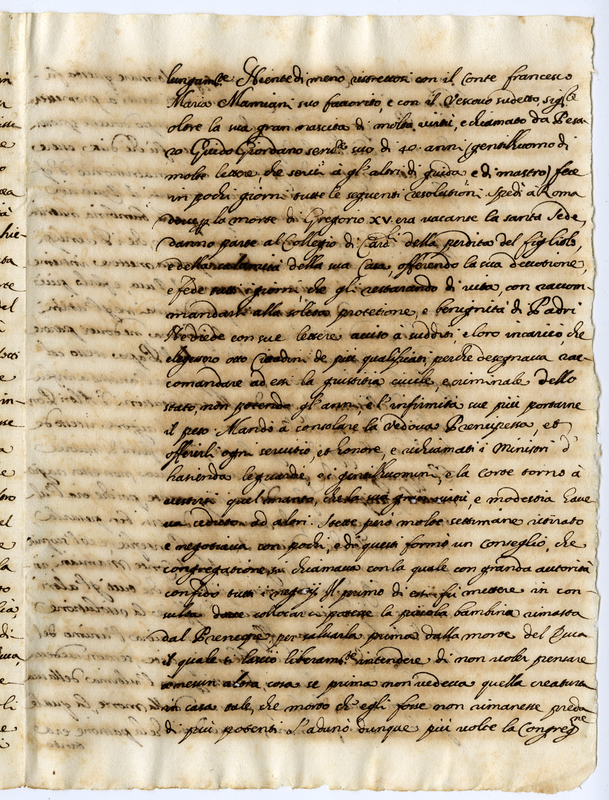 lungam.te Niente di meno ristrettosi con il Conte francesco
Maria Mamiani suo fauorito, e con il Vescouo sudetto,
oltre la sua gran nascita di molta uirtù, e chiamato da Pesa
ro Guido Giordano seru.re suo di 40 anni (gentilhuomo di
molte lettere che seruì à gl'altri di guida e di mastro) fece
in pochi giorni tutte le seguenti resolutioni. Spedì à Roma
doue la morte di Gregorio XV era uacante la santa Sede
danno parte al Collegio di Card.li della perdita del figliolo,
e della della sua Casa, offerendo la sua deuotione,
e fede tutti i giorni che gli restarando di uita, con raccom-
mandarsi alla solita protetione, e benignità di Padri
Ne diede con sue lettere auiso à sudditi, e loro incaricò che
elegessero otto Cittadini de più qualificati perche desegnaua rac-
comandare ad essi la giustitia ciuile, e criminale dello
stato, non potendo gl'anni, e l'infirmità sue più portarne
il peso. Mandò à consolare la Vedoua Prencipessa, et
offerirli ogni seruitio, et honore, e richiamati i Ministri d'
hazienda le guardie, e i gentilhuomini, e la Corte tornò à
uestirsi quel manto, che la sua gran uirtù, e modestia haue
ua ceduto ad altri. Stette però molte settimane ritirato
e negotiaua con pochi, e di questi formò un Conseglio, che
congregatione si chiamaua con la quale con grande autorità
confidò tutti i negotij. Il primo di essi fù mettere in con-
sulta doue collocar si potesse la piccola bambina rimasta
dal Prencipe, per saluarla prima dalla morte del Duca
il quale si lasciò liberam.te intendere di non uoler pensare
a nessun altra cosa se prima non uedeua quella creatura
in casa tale, che morto ch'egli fosse non rimanesse preda
di più potenti s'adunò dunque più uolte la Congreg.ne